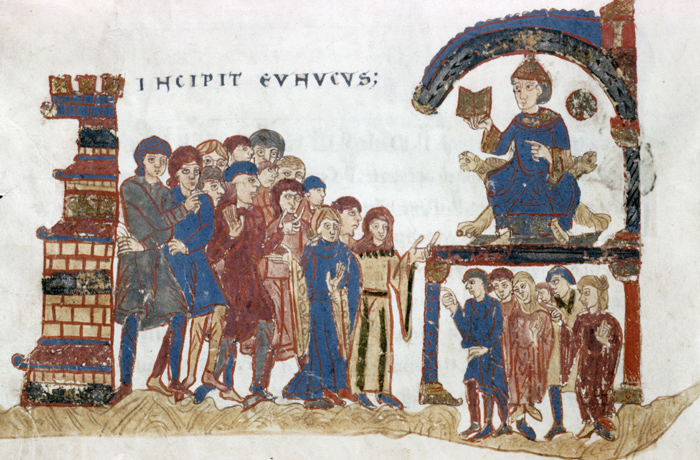 INCIPIT EVNVCVS;